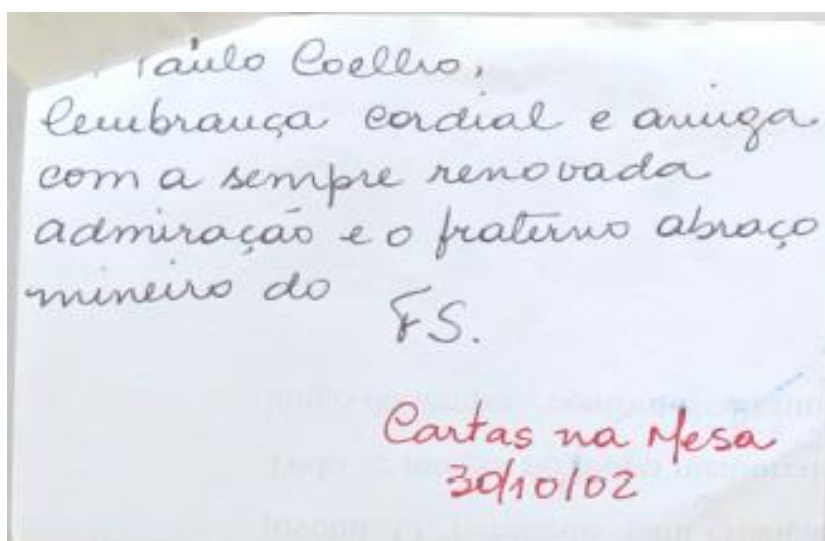 Paulo Coelho,
lembrança cordial e amiga
com a sempre renovada
admiração e o fraterno abraço
mineiro do
FS.
Cartas na Mesa
30/10/02